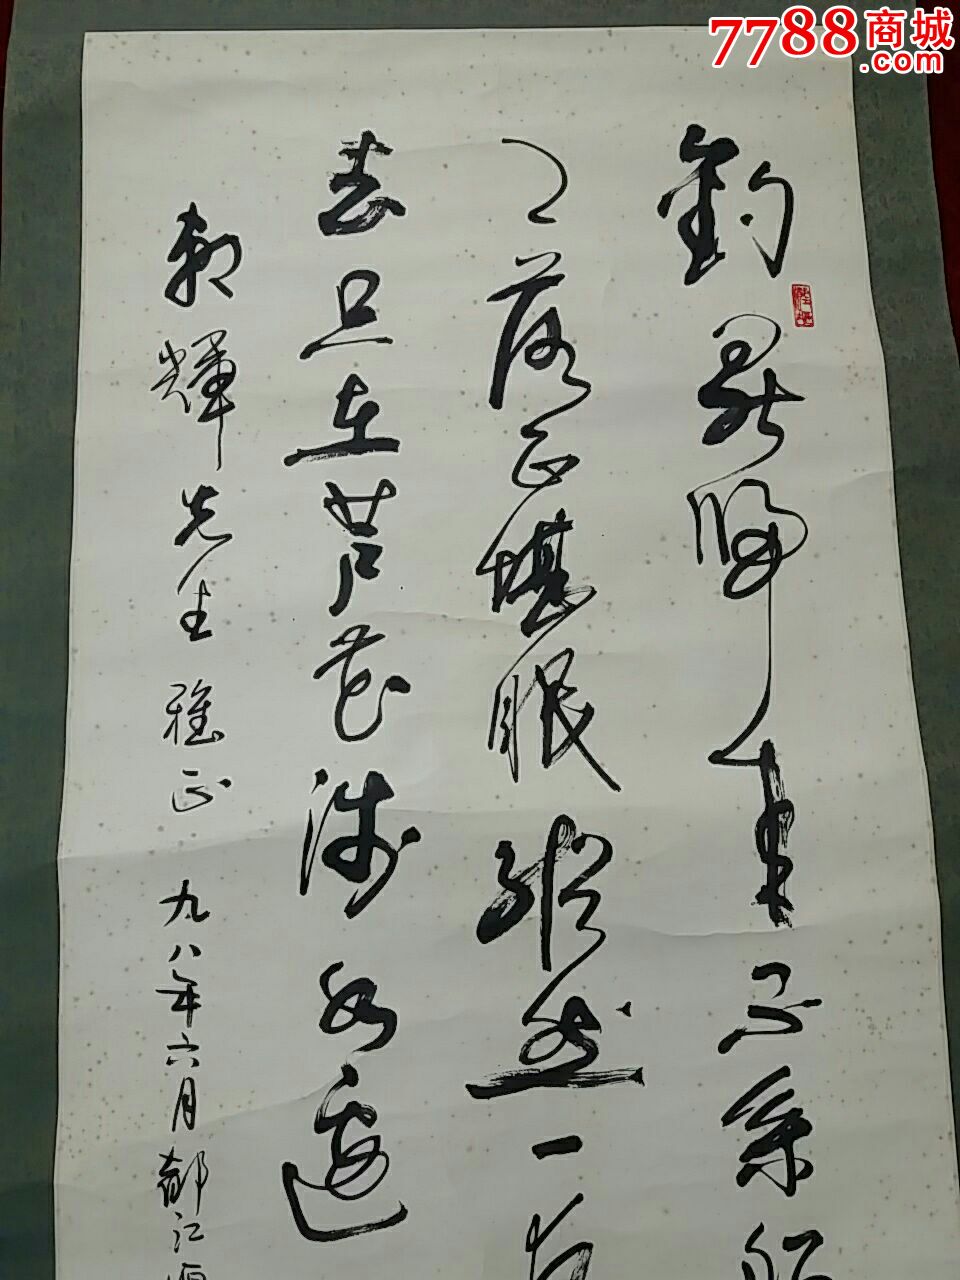 7788商城
.com
釣罷歸來不系船
月落正堪眠縱然一夜
去只在芦花淺水邊
朝輝先生雅正 九八年六月都江